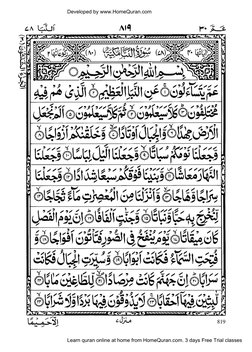 Developed by www.HomeQuran.com
عَمَّ ٣٠ ٨١٩ اَلنَّبَا ٧٨
(٧٨) سُوْرَةُ النَّبَاِ مَكِّيَّةٌ (٨٠)
بِسْمِ اللّٰهِ الرَّحْمٰنِ الرَّحِيْمِ
عَمَّ يَتَسَآءَلُوْنَ۝ عَنِ النَّبَاِ الْعَظِيْمِ۝ الَّذِيْ هُمْ فِيْهِ
مُخْتَلِفُوْنَ۝ كَلَّا سَيَعْلَمُوْنَ۝ ثُمَّ كَلَّا سَيَعْلَمُوْنَ۝ اَلَمْ نَجْعَلِ
الْاَرْضَ مِهٰدًا۝ وَّالْجِبَالَ اَوْتَادًا۝ وَّخَلَقْنٰكُمْ اَزْوَاجًا۝
وَّجَعَلْنَا نَوْمَكُمْ سُبَاتًا۝ وَّجَعَلْنَا الَّيْلَ لِبَاسًا۝ وَّجَعَلْنَا
النَّهَارَ مَعَاشًا۝ وَّبَنَيْنَا فَوْقَكُمْ سَبْعًا شِدَادًا۝ وَّجَعَلْنَا
سِرَاجًا وَّهَّاجًا۝ وَّاَنْزَلْنَا مِنَ الْمُعْصِرٰتِ مَآءً ثَجَّاجًا۝
لِّنُخْرِجَ بِهٖ حَبًّا وَّنَبَاتًا۝ وَّجَنّٰتٍ اَلْفَافًا۝ اِنَّ يَوْمَ الْفَصْلِ
كَانَ مِيْقَاتًا۝ يَّوْمَ يُنْفَخُ فِي الصُّوْرِ فَتَاْتُوْنَ اَفْوَاجًا۝
وَّفُتِحَتِ السَّمَآءُ فَكَانَتْ اَبْوَابًا۝ وَّسُيِّرَتِ الْجِبَالُ فَكَانَتْ
سَرَابًا۝ اِنَّ جَهَنَّمَ كَانَتْ مِرْصَادًا۝ لِّلطَّاغِيْنَ مَاٰبًا۝
لّٰبِثِيْنَ فِيْهَآ اَحْقَابًا۝ لَا يَذُوْقُوْنَ فِيْهَا بَرْدًا وَّلَا شَرَابًا۝
اِلَّا حَمِيْمًا منزل ٧ 819
Learn quran online at home from HomeQuran.com. 3 days Free Trial classes